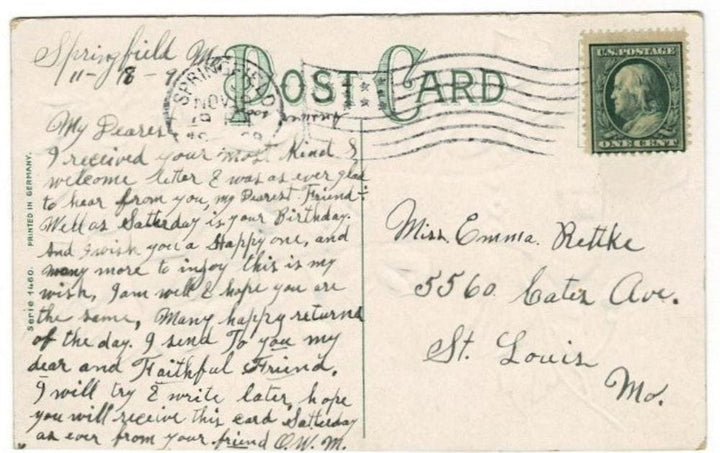 Springfield Mo
11 - 8 - 9
POST CARD
SPRINGFIELD
NOV
U.S. POSTAGE
ONE CENT
My Dearest
I received your most Kind &
welcome letter & was as ever glad
to hear from you, my Dearest Friend.
Well as Satterday is your Birthday.
And I wish you a Happy one, and
many more to injoy this is my
wish, I am well & hope you are
the same, Many happy returns
of the day. I send To you my
dear and Faithful Friend.
I will try & write later, hope
you will receive this card Satterday
as ever from your friend O.W.M.
Miss. Emma. Rettke
5560 Cates Ave.
St. Louis
Mo.
Serie 1460. PRINTED IN GERMANY.